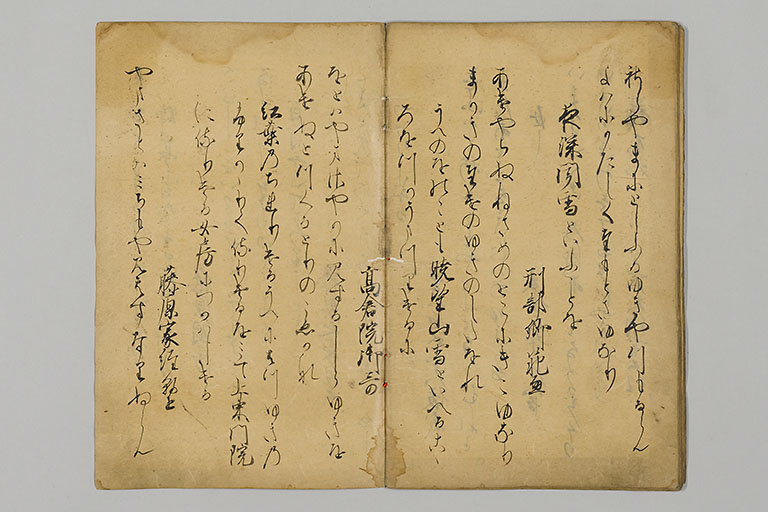 やまにとしふるゆきやつもるらん
よはにかたしくたもとさゆなり
夜深聞雪といふことを
刑部卿範兼
あけやらぬねさめのとこにきこゆなり
まかきのたけのゆきのしたをれ
うへのをのことも暁望山雪といへるこゝ
ろをつかうまつりけるに
高倉院御哥
をとはやまさやかにみするしらゆきを
あけぬとつくるとりのこゑかな
紅葉のちれりけるうへにはつゆきの
ふりかゝりて侍りけるをみて上東門院
に侍りける女房につかはしける
藤原家経朝臣
やまさとはみちもや見えすなりぬらん